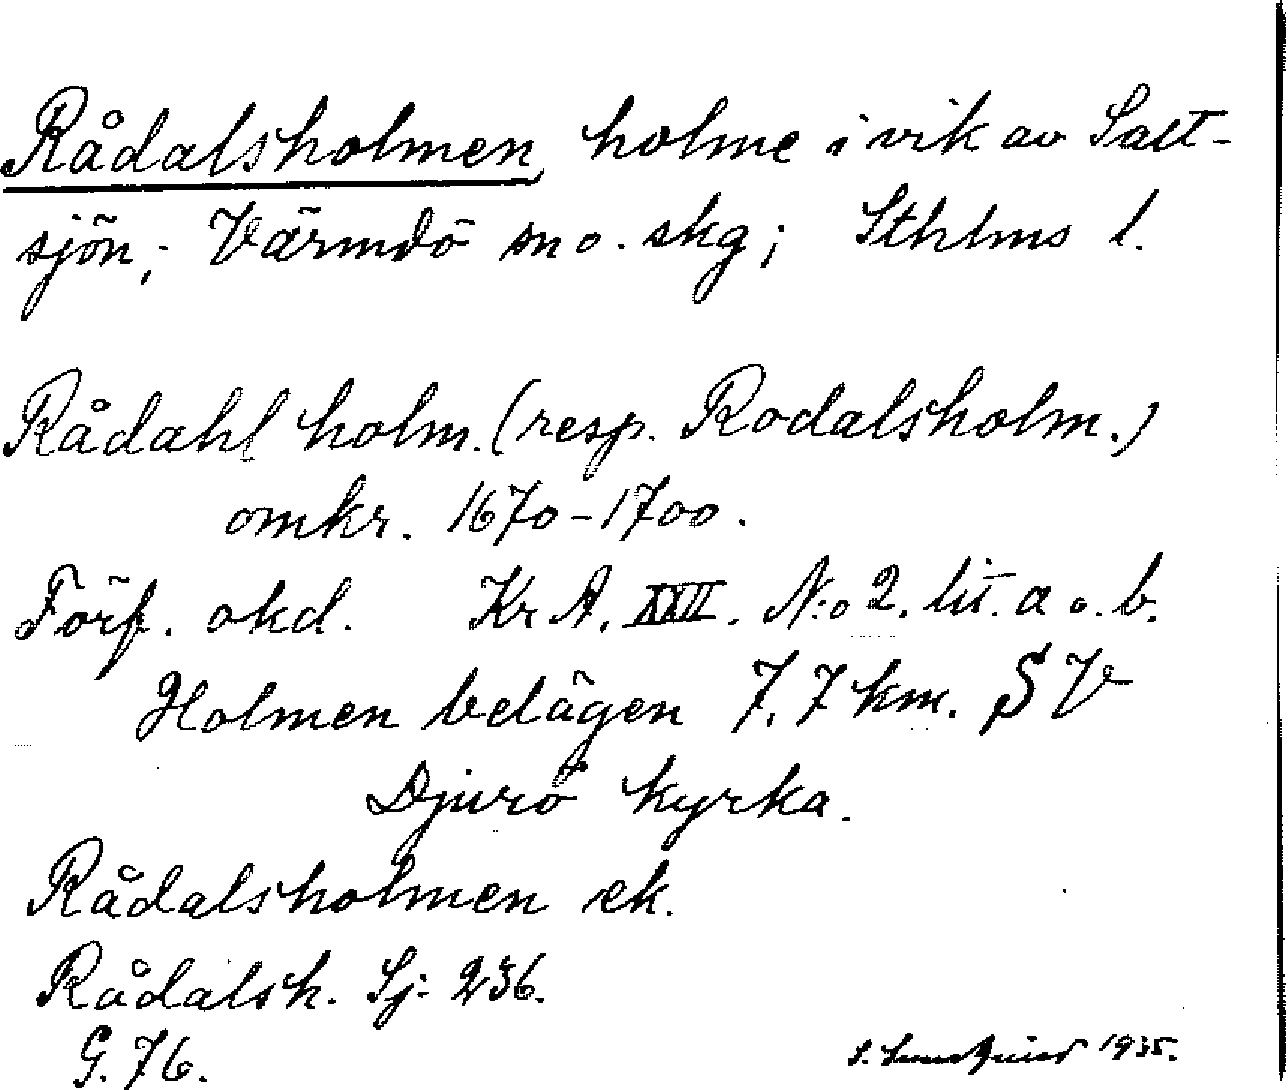 Rådalsholmen, holme i vik av Salt-
sjön; Värmdö sn o. skg; Sthlms l.
Rådahl holm. (resp. Rodalsholm.)
omkr. 1670-1700.
Förf. okd. Kr A. XXVI. N:o 2. lit. a o. b.
Holmen belägen 7,7 km. SV
Djurö kyrka.
Rådalsholmen ek.
Rådalsh. Sj: 236.
G. 76.
S. 1935.